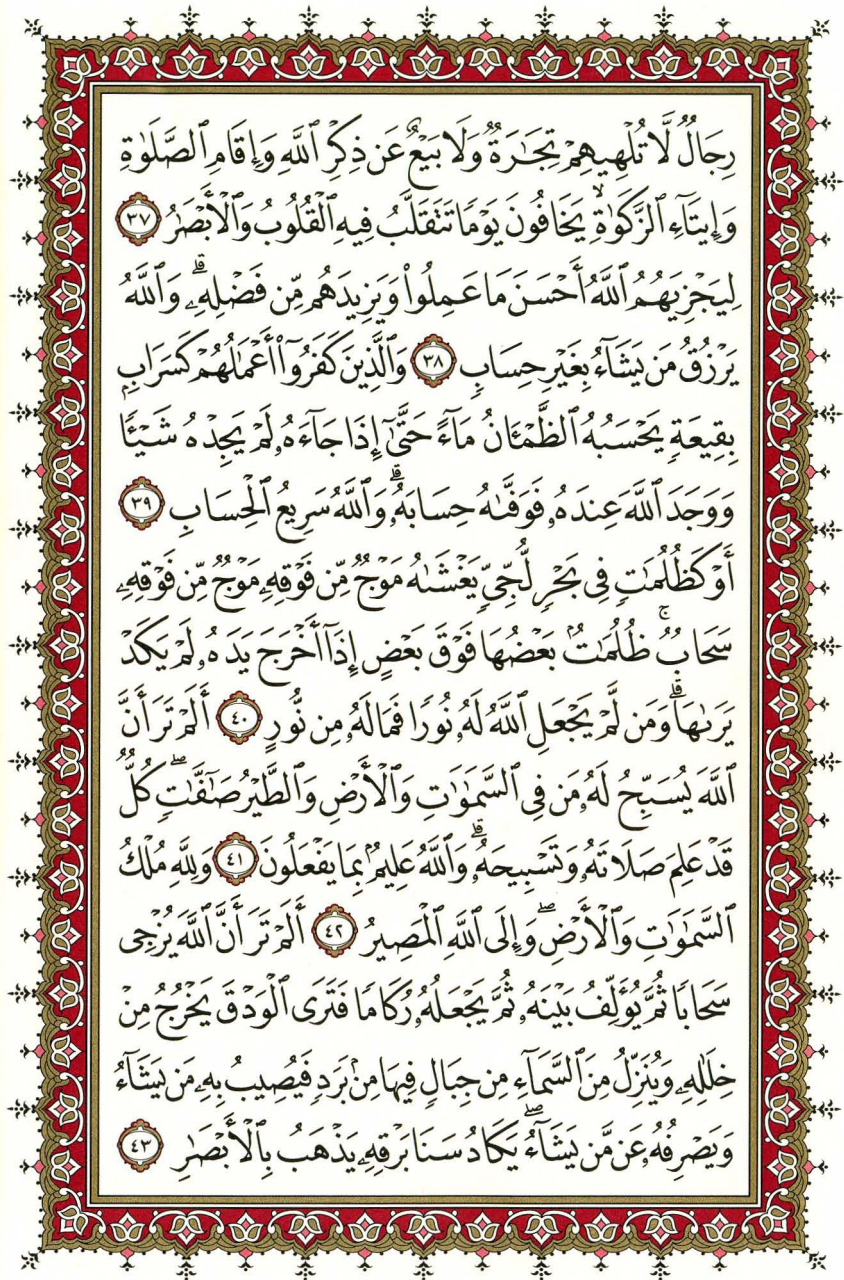 رِجَالٌ لَّا تُلْهِيهِمْ تِجَـٰرَةٌ وَلَا بَيْعٌ عَن ذِكْرِ ٱللَّهِ وَإِقَامِ ٱلصَّلَوٰةِ
وَإِيتَآءِ ٱلزَّكَوٰةِ ۙ يَخَافُونَ يَوْمًا تَتَقَلَّبُ فِيهِ ٱلْقُلُوبُ وَٱلْأَبْصَـٰرُ ٣٧
لِيَجْزِيَهُمُ ٱللَّهُ أَحْسَنَ مَا عَمِلُوا۟ وَيَزِيدَهُم مِّن فَضْلِهِۦ ۗ وَٱللَّهُ
يَرْزُقُ مَن يَشَآءُ بِغَيْرِ حِسَابٍ ٣٨ وَٱلَّذِينَ كَفَرُوٓا۟ أَعْمَـٰلُهُمْ كَسَرَابٍۭ
بِقِيعَةٍ يَحْسَبُهُ ٱلظَّمْـَٔانُ مَآءً حَتَّىٰٓ إِذَا جَآءَهُۥ لَمْ يَجِدْهُ شَيْـًٔا
وَوَجَدَ ٱللَّهَ عِندَهُۥ فَوَفَّىٰهُ حِسَابَهُۥ ۗ وَٱللَّهُ سَرِيعُ ٱلْحِسَابِ ٣٩
أَوْ كَظُلُمَـٰتٍ فِى بَحْرٍ لُّجِّىٍّ يَغْشَىٰهُ مَوْجٌ مِّن فَوْقِهِۦ مَوْجٌ مِّن فَوْقِهِۦ
سَحَابٌ ۚ ظُلُمَـٰتٌۢ بَعْضُهَا فَوْقَ بَعْضٍ إِذَآ أَخْرَجَ يَدَهُۥ لَمْ يَكَدْ
يَرَىٰهَا ۗ وَمَن لَّمْ يَجْعَلِ ٱللَّهُ لَهُۥ نُورًا فَمَا لَهُۥ مِن نُّورٍ ٤٠ أَلَمْ تَرَ أَنَّ
ٱللَّهَ يُسَبِّحُ لَهُۥ مَن فِى ٱلسَّمَـٰوَٰتِ وَٱلْأَرْضِ وَٱلطَّيْرُ صَـٰٓفَّـٰتٍ ۖ كُلٌّ
قَدْ عَلِمَ صَلَاتَهُۥ وَتَسْبِيحَهُۥ ۗ وَٱللَّهُ عَلِيمٌۢ بِمَا يَفْعَلُونَ ٤١ وَلِلَّهِ مُلْكُ
ٱلسَّمَـٰوَٰتِ وَٱلْأَرْضِ ۖ وَإِلَى ٱللَّهِ ٱلْمَصِيرُ ٤٢ أَلَمْ تَرَ أَنَّ ٱللَّهَ يُزْجِى
سَحَابًا ثُمَّ يُؤَلِّفُ بَيْنَهُۥ ثُمَّ يَجْعَلُهُۥ رُكَامًا فَتَرَى ٱلْوَدْقَ يَخْرُجُ مِنْ
خِلَـٰلِهِۦ وَيُنَزِّلُ مِنَ ٱلسَّمَآءِ مِن جِبَالٍ فِيهَا مِنۢ بَرَدٍ فَيُصِيبُ بِهِۦ مَن يَشَآءُ
وَيَصْرِفُهُۥ عَن مَّن يَشَآءُ ۖ يَكَادُ سَنَا بَرْقِهِۦ يَذْهَبُ بِٱلْأَبْصَـٰرِ ٤٣